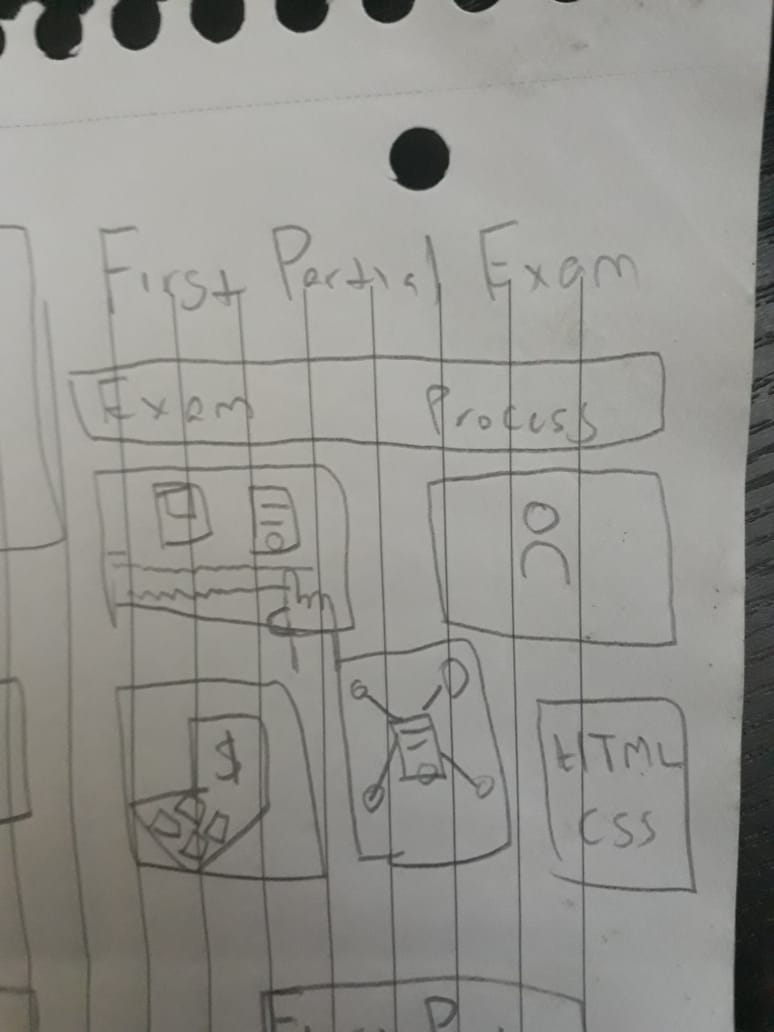 First Partial Exam
Exam Process
$
HTML
CSS